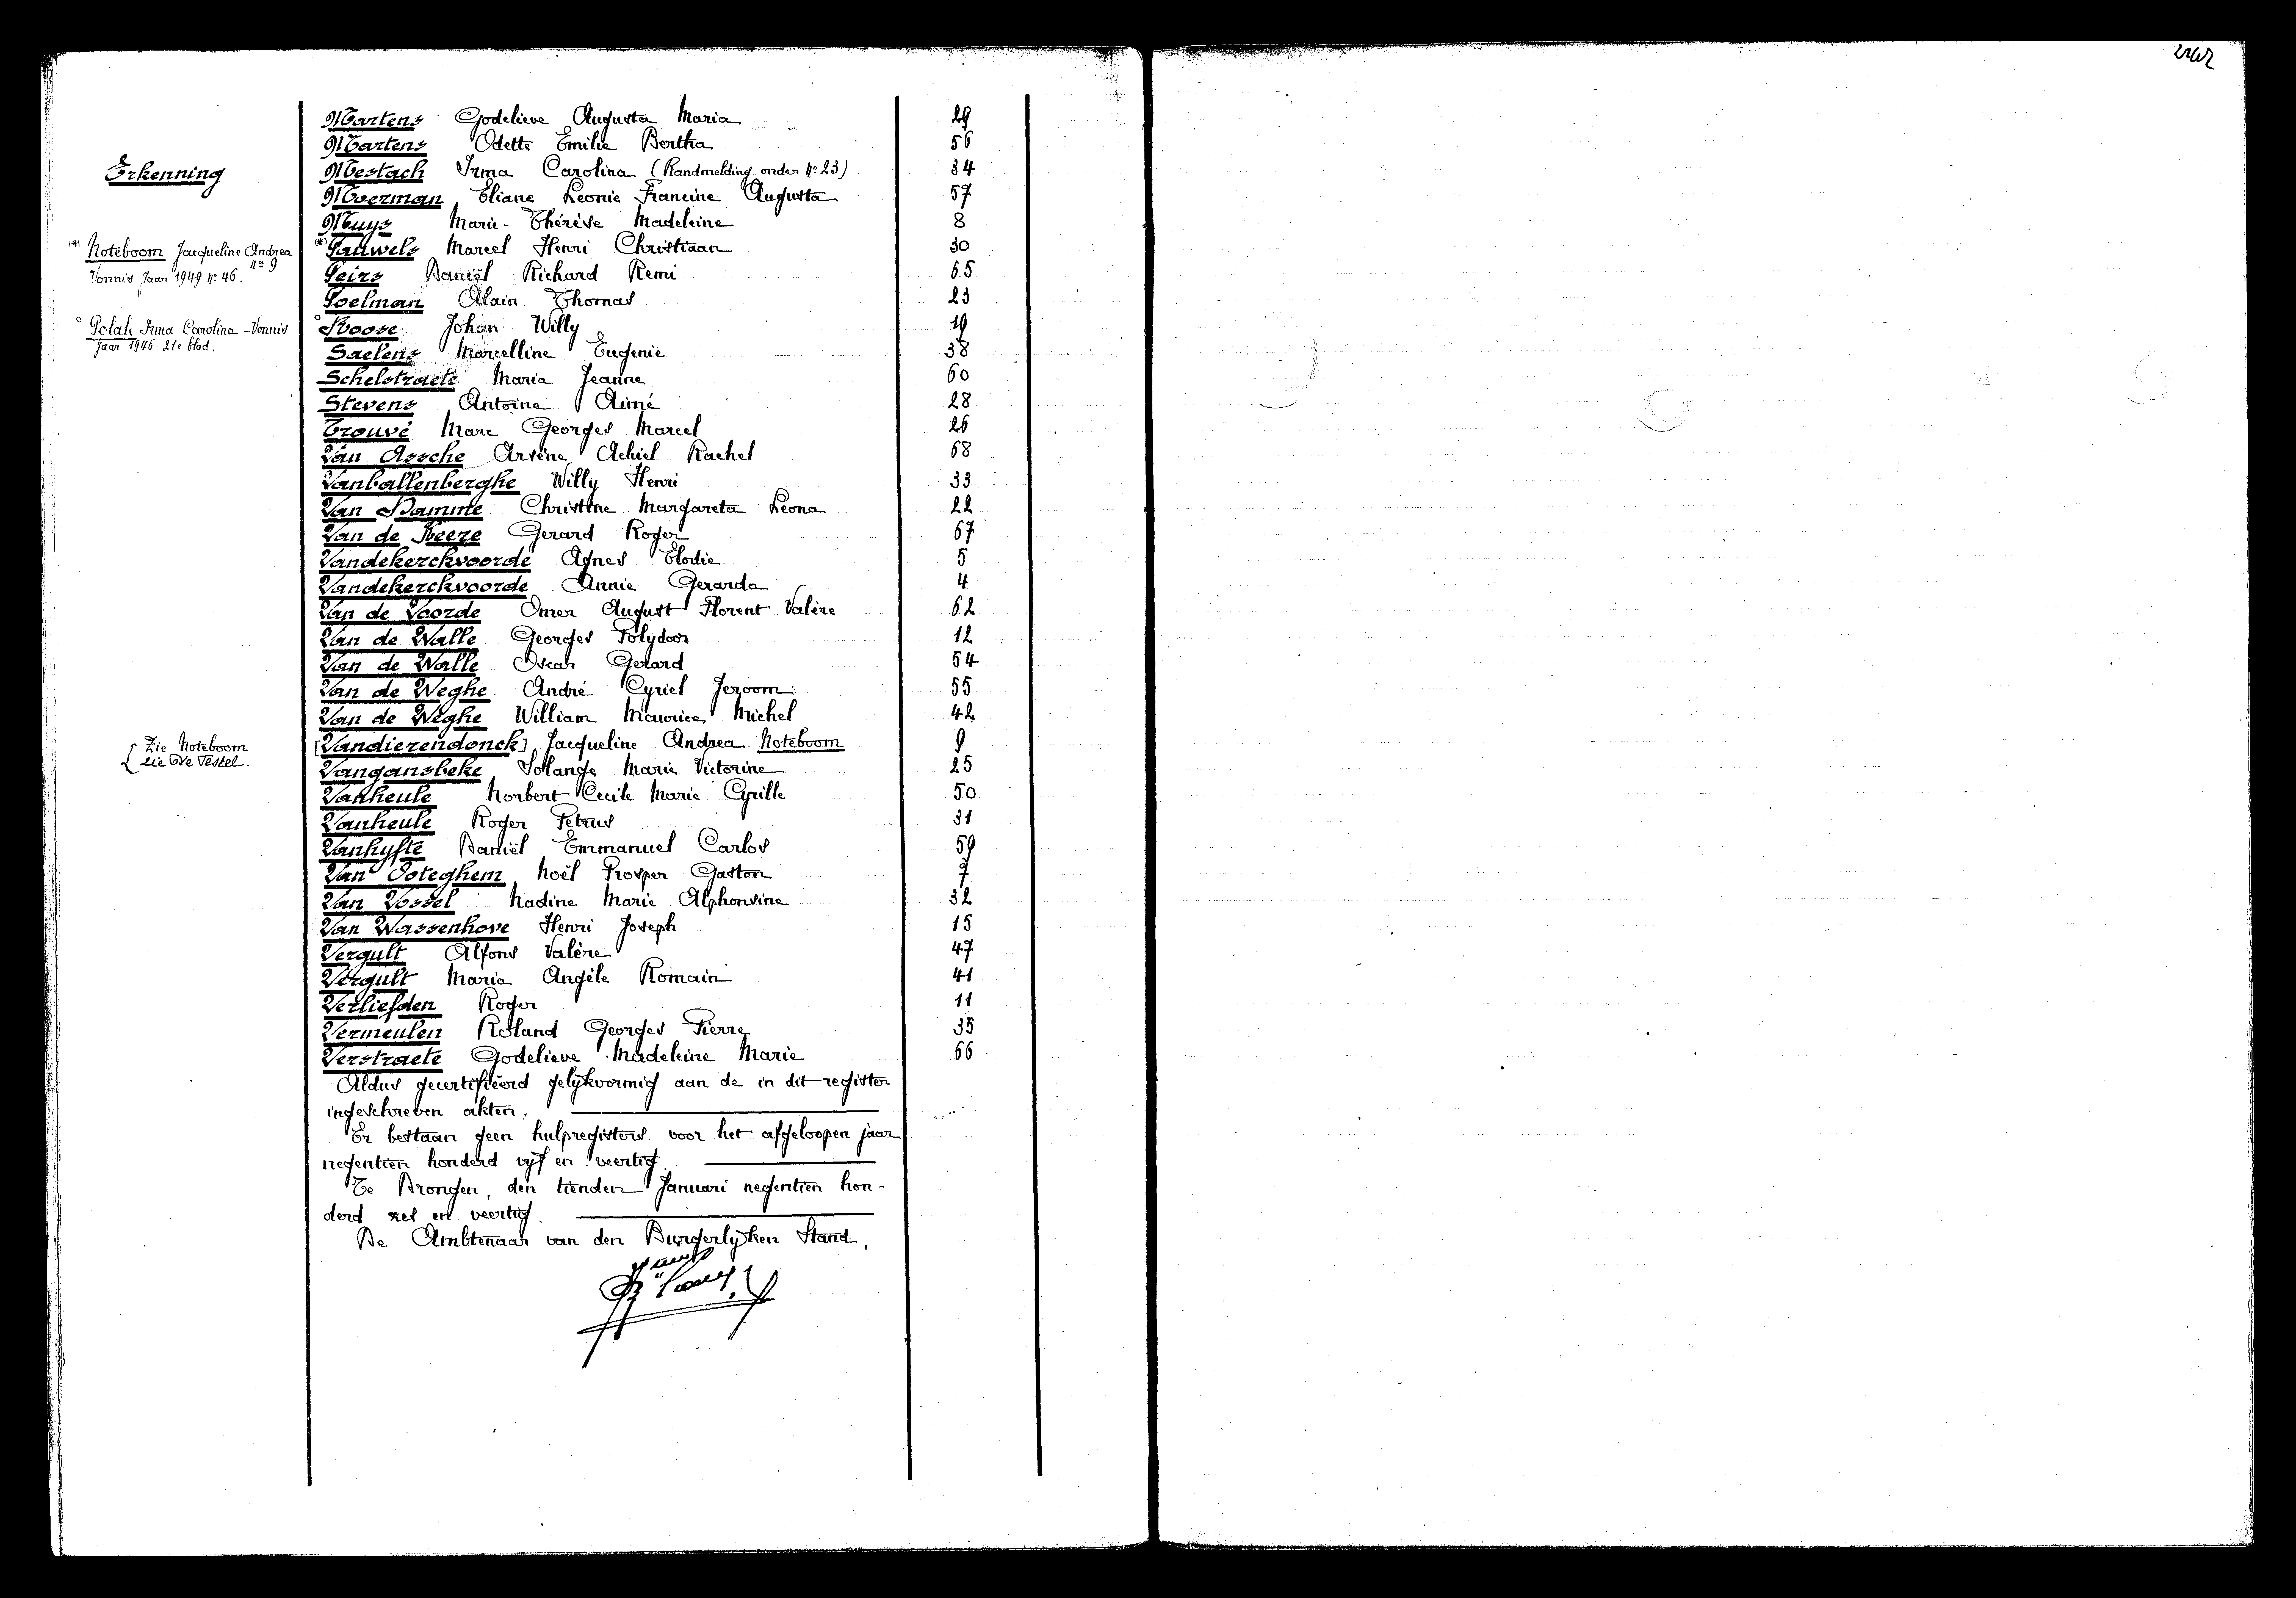 Martens Godelieve Augusta Maria 29
Martens Odette Emilie Bertha 56
Erkenning
Mestach Irma Carolina (Randmelding onder nr 23) 34
Moerman Eliane Leonie Francine Augusta 57
Muys Marie-Thérèse Madeleine 8
(*) Noteboom Jacqueline Andrea nr 9
Vonnis Jaar 1949 nr 46.
(*) Pauwels Marcel Henri Christiaan 30
Peirs Daniël Richard Remi 65
Poelman Alain Thomas 23
° Polak Irma Carolina - Vonnis
Jaar 1946 - 21e blad.
° Roose Johan Willy 19
Saelens Marcelline Eugenie 38
Schelstraete Maria Jeanne 60
Stevens Antoine Aimé 28
Trouvé Marc Georges Marcel 26
Van Assche Arsène Achiel Rachel 68
Vanballenberghe Willy Henri 33
Van Damme Christine Margareta Leona 22
Van de Keere Gerard Roger 67
Vandekerckvoorde Agnes Elodie 5
Vandekerckvoorde Annie Gerarda 4
Van de Voorde Omer August Florent Valère 62
Van de Walle Georges Polydoor 12
Van de Walle Oscar Gerard 54
Van de Weghe André Cyriel Jeroom 55
Van de Weghe William Maurice Michel 42
{ Zie Noteboom
zie De Vestel.
[Vandierendonck] Jacqueline Andrea Noteboom 9
Vangansbeke Solange Marie Victorine 25
Vanheule Norbert Cecile Marie Cyrille 50
Vanheule Roger Petrus 31
Vanhyfte Daniël Emmanuel Carlos 59
Van Ooteghem Noël Prosper Gaston 7
Van Vossel Nadine Marie Alphonsine 32
Van Wassenhove Henri Joseph 15
Vergult Alfons Valère 47
Vergult Maria Angèle Romain 41
Verliefden Roger 11
Vermeulen Roland Georges Pierre 35
Verstraete Godelieve Madeleine Marie 66
Aldus gecertifiëerd gelijkvormig aan de in dit register
ingeschreven akten.
Er bestaan geen hulpregisters voor het afgeloopen jaar
negentien honderd vijf en veertig.
Te Drongen, den tienden Januari negentien hon-
derd zes en veertig.
De Ambtenaar van den Burgerlijken Stand,